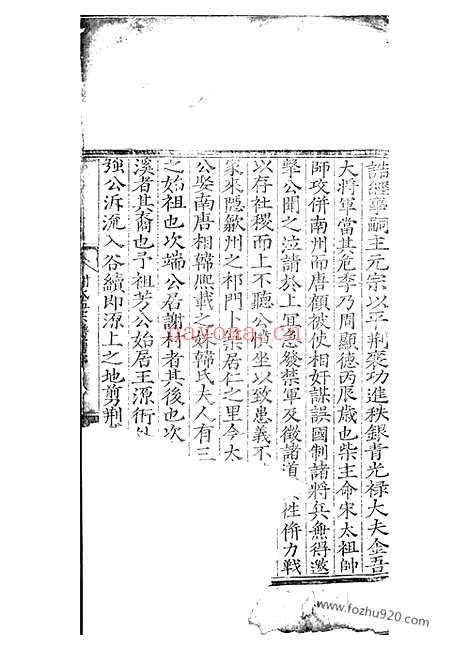 誥經喜嗣主元宗以平荆襄功進秩銀青光禄大夫金吾
大將軍當其危季乃周顯德丙辰歲也柴主命宋太祖帥
師攻併南州而唐顧被使相奸謀誤國制諸將兵無得邀
擊公聞之泣請於上冝急發禁軍及徵諸道 姓併力戰
以存社稷而上不聽公 坐以致患義不
家來隠歙州之祁門卜築居仁之里今大
公娶南唐相韓熈載之妹韓氏夫人有三
之始祖也次端公居謝村者其後也次
溪者其裔也予祖芳公始居王源術
強公泝流入谷續即源上之地剪荆
nayona.cn
https://www.fozhu920.com/